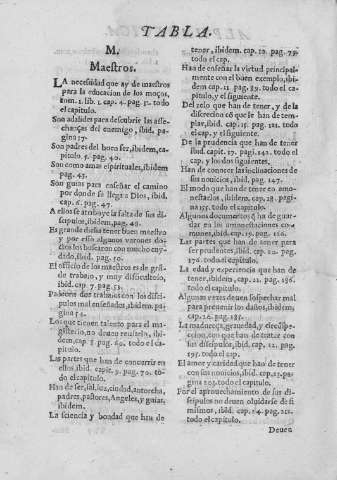 TABLA.
M.
Maestros.
LA necesidad que ay de maestros
para la educacion de los moços,
tom. 1. lib. 1. cap. 4. pag. 31. todo
el capitulo.
Son adalides para descubrir las asse-
chanças del enemigo, ibid. pa
gina 37.
Son padres del hombre, ibidem, ca-
pitulo 5. pag. 40.
Son como amas espirituales, ibidem
pag. 43.
Son guias para enseñar el camino
por donde se llega a Dios, ibid.
cap. 6. pag. 47.
A ellos se atribuye la falta de sus di-
scipulos, ibidem, pag. 48.
Es grande dicha tener buen maestro
y por esso algunos varones do-
ctos los buscaron con mucho cuy-
dado, ibid. pag. 50.
El officio de los maestros es de gran-
de trabajo, y muy dificultoso,
ibid. cap. 7. pag. 53.
Padecen dos trabajos con los disci-
pulos mal enseñados, ibidem, pa-
gina 54.
Los que tienen talento para el ma-
gisterio, no deuen rehusarlo, ibi-
dem, cap. 8. pag. 60. todo el ca-
pitulo.
Las partes que han de concurrir en
ellos, ibid. capit. 9. pag. 70. to-
do el capitulo.
Han de ser, sal, luz, ciudad, antorcha,
padres, pastores, Angeles, y guias,
ibidem.
La sciencia y bondad que han de
tener, ibidem. cap. 10. pag. 79.
todo el cap.
Han de enseñar la virtud principal-
mente con el buen exemplo, ibi-
dem cap. 11. pag. 89. todo el ca-
pitulo, y el siguiente.
Del zelo que han de tener, y de la
discrecion cõ que le han de tem-
plar, ibid. cap. 15. pag. 121. todo
cap. y el siguiente.
De la prudencia que han de tener
ibid. capit. 17. pag. 141. todo el
cap. y los dos siguientes.
Han de conocer las inclinaciones de
sus nouicios, ibid. pag. 147.
El modo que han de tener en amo-
nestarlos, ibidem, cap. 18. pagi-
na 155. todo el capitulo.
Algunos documentos q̃ ha de guar-
dar en las amonestaciones co-
munes, ibid. cap. 19. pag. 160.
Las partes que han de tener para
ser prudentes, ibid. cap. 20. pag.
176. todo el capitulo.
La edad y experiencia que han de
tener, ibidem, cap. 21. pag. 186.
todo el capitulo.
Algunas vezes deuen sospechar mal
para preuenir los daños, ibidem,
cap. 16. pag. 185.
La madureça, grauedad, y circūspe-
ccion, con que han de tratar con
sus discipulos, ibid. cap. 22. pag.
195. todo el cap.
El amor y caridad que han de tener
con sus nouicios, ibid. cap. 23. pa-
gina 203. todo el capitulo.
Por el aprouechamiento de sus di-
scipulos no deuen oluidarse de si
mismos, ibid. cap. 24. pag. 211.
todo el capitulo.
Deuen